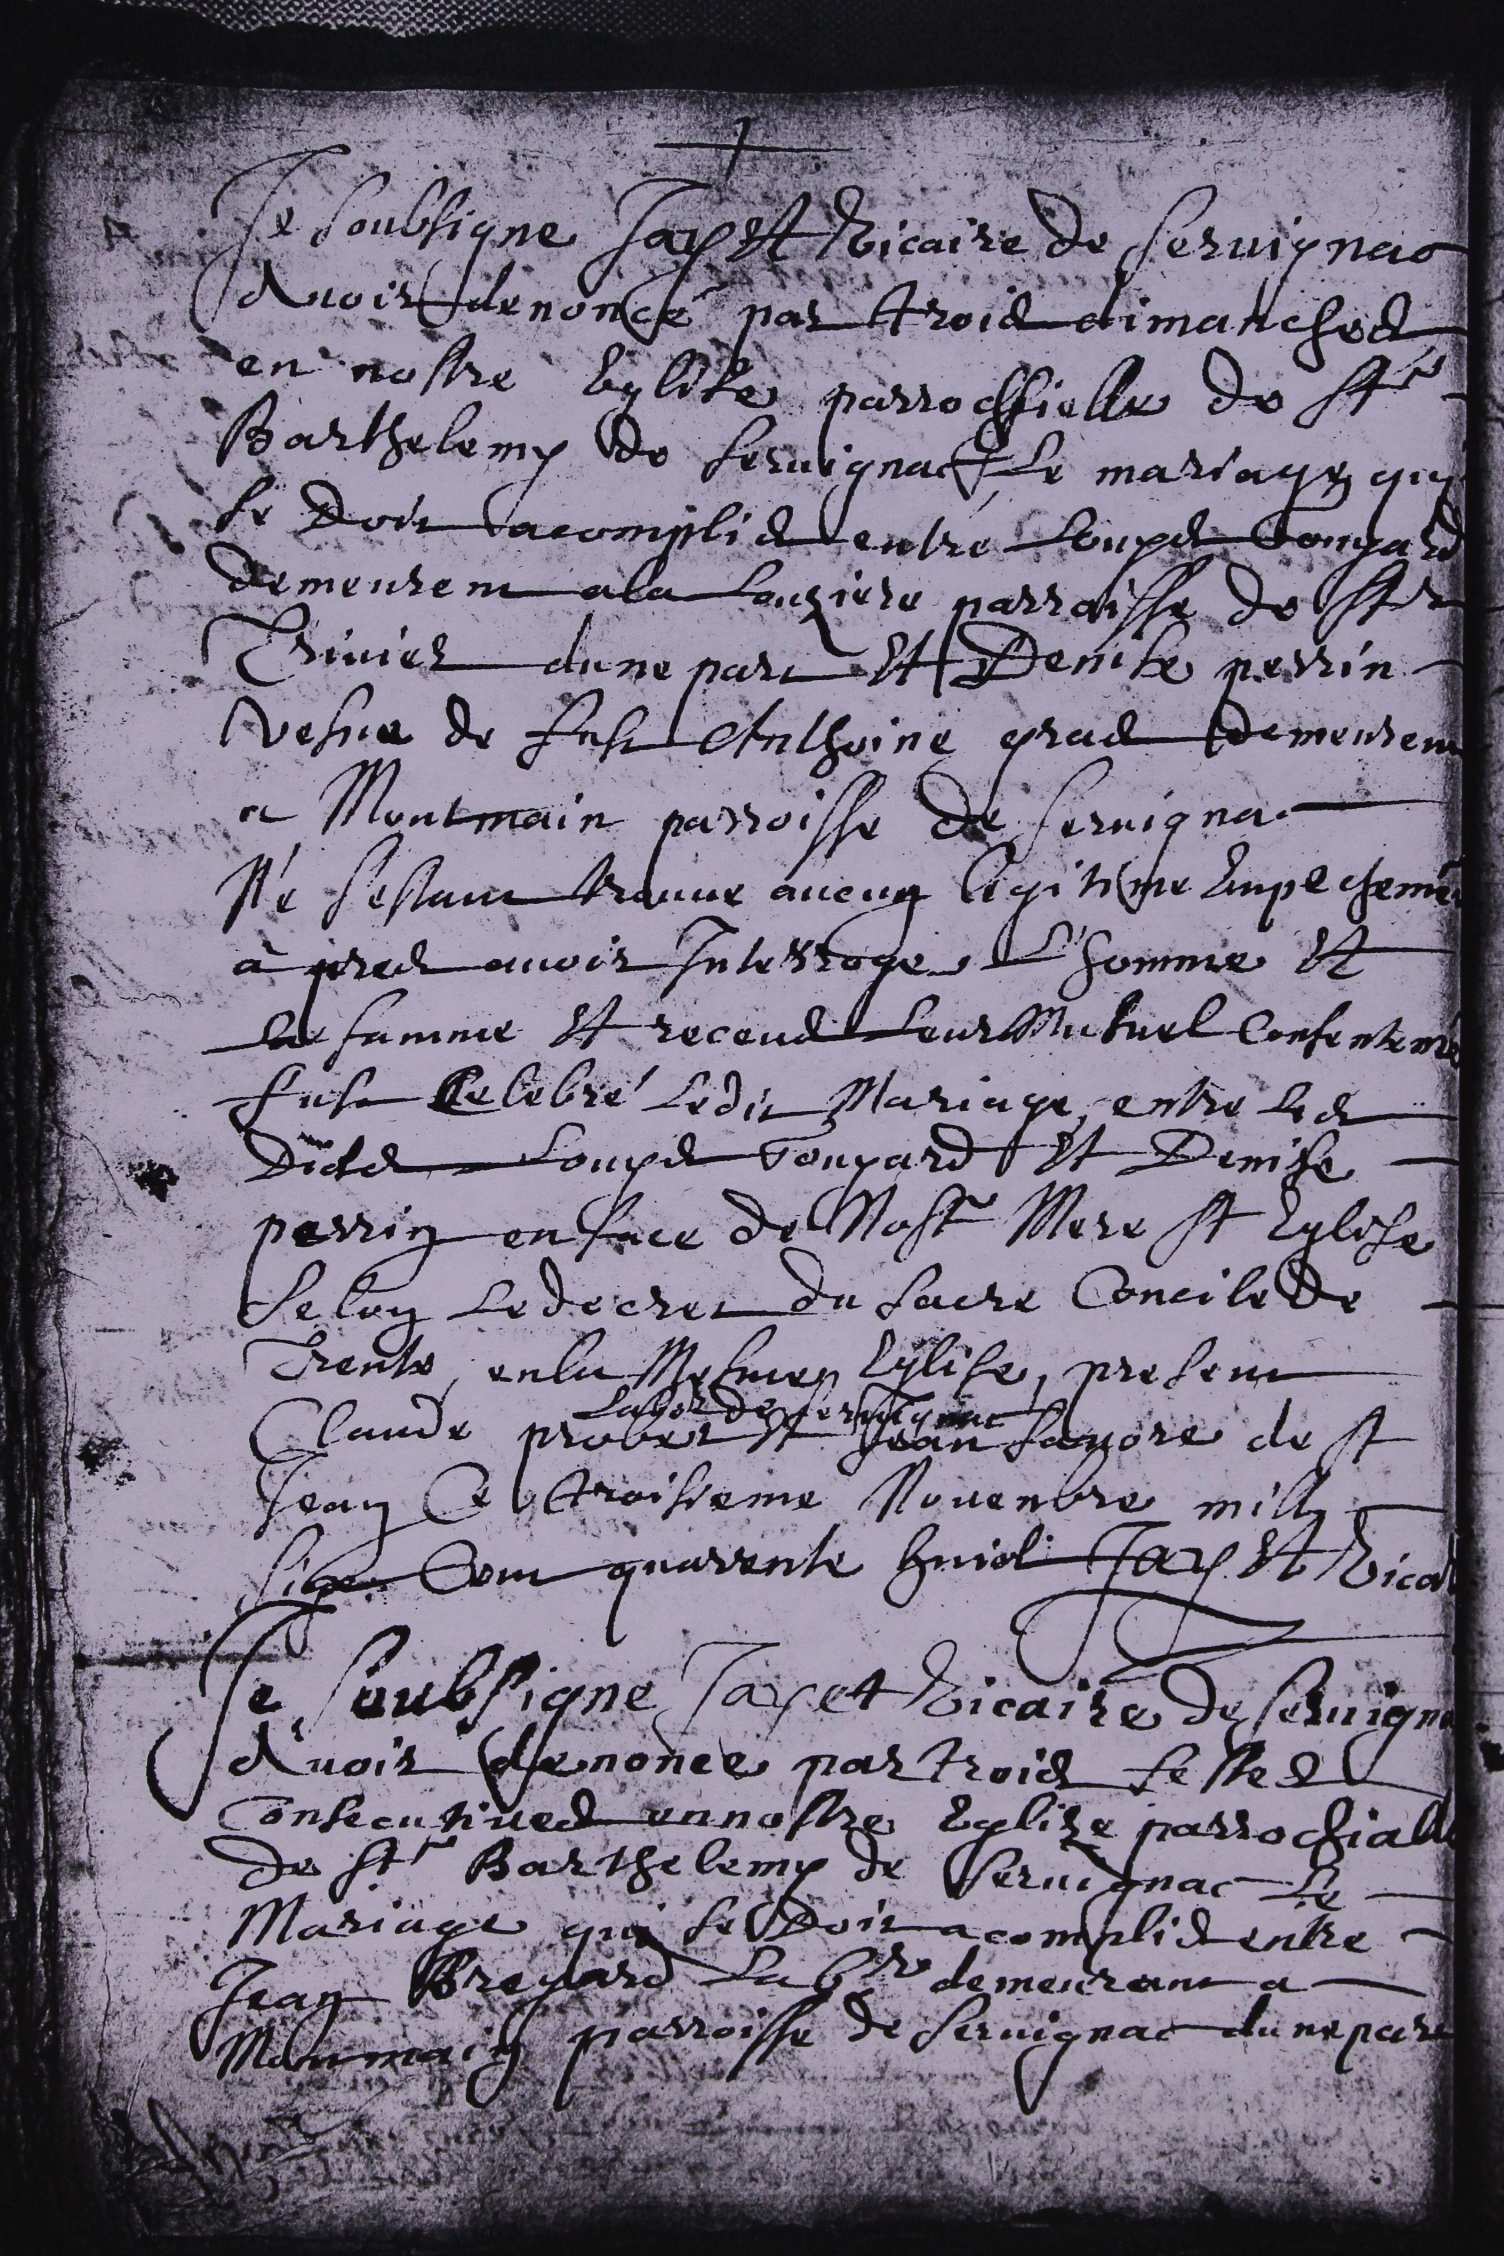 Je soubsigne Jayet Vicaire de Seruignac
Auoir denoncé par trois dimanches
en nostre Eglise parrochielle de St
Barthelemy de Seruignac Le mariage qui
se doit acomplis entre Loups Gougard
demeurent a la Louziere parroisse de St
Triuier dune part Et Denise perrin
vefue de fust Anthoine pras demeurent
a Montmain parroisse de Seruignac
Né sestant trouue aucun legitime Empechemẽ
à pres auoir Interroge L'homme Et
la famme Et receus Leur Mutuel Consentemẽ
fust Celebré Ledit Mariage entre Les
Dictes Loups Gougard Et Denise
perrin en face de Nostr Mere St Eglise
selon Le decret du sacre Concile de
Trente en la Mesme Eglise, present
Labor de Seruignac
Claude prober Et Jean fauore de St
Jean Ce troisieme Nouenbre mill
six Cent quarente huict Jayet Vica
Je Soubsigne Jayet Vicaire de Seruigna
Auoir denonce par trois festes
Consecutiues en nostre Eglize parrochialle
de St Barthelemy de Seruignac Le
Mariage qui se Doit acomplis entre
Jean Bregard Labr demeurant a
Montmain parroisse de Seruignac dune part